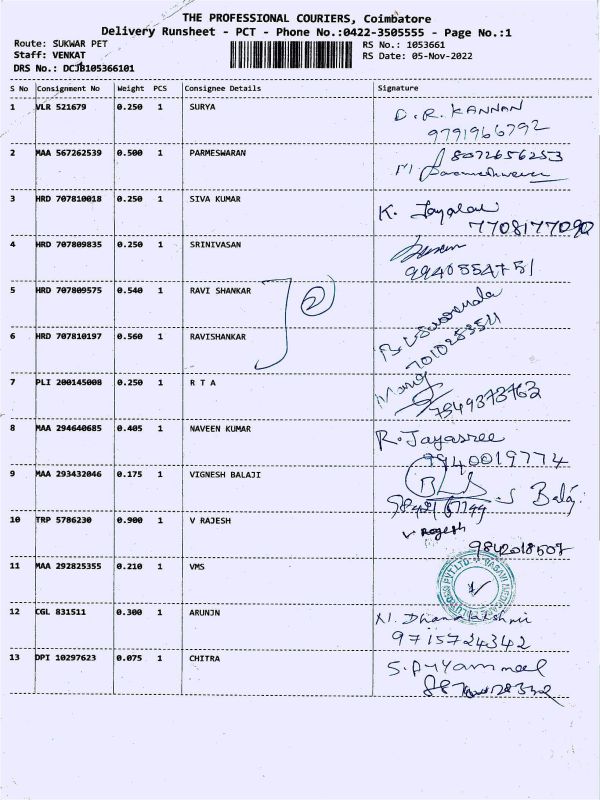 THE PROFESSIONAL COURIERS, Coimbatore
Delivery Runsheet - PCT - Phone No.:0422-3505555 - Page No.:1
Route: SUKWAR PET RS No.: 1053661
Staff: VENKAT RS Date: 05-Nov-2022
DRS No.: DCJB105366101
S No Consignment No Weight PCS Consignee Details Signature
1 VLR 521679 0.250 1 SURYA D.R. KANNAN
9791966792
2 MAA 567262539 0.500 1 PARMESWARAN 8072656253
M
3 HRD 707810018 0.250 1 SIVA KUMAR K.
7708177090
4 HRD 707809835 0.250 1 SRINIVASAN
9940554751
5 HRD 707809575 0.540 1 RAVI SHANKAR 2
6 HRD 707810197 0.560 1 RAVISHANKAR
7010253511
7 PLI 200145008 0.250 1 R T A Manoj
7549373763
8 MAA 294640685 0.405 1 NAVEEN KUMAR R. Jayasree
9940019774
9 MAA 293432046 0.175 1 VIGNESH BALAJI S Balaji
10 TRP 5786230 0.900 1 V RAJESH V Rogesh
9842018507
11 MAA 292825355 0.210 1 VMS
12 CGL 831511 0.300 1 ARUNJN N. Dhanalakshmi
9715724342
13 DPI 10297623 0.075 1 CHITRA S. priyammal